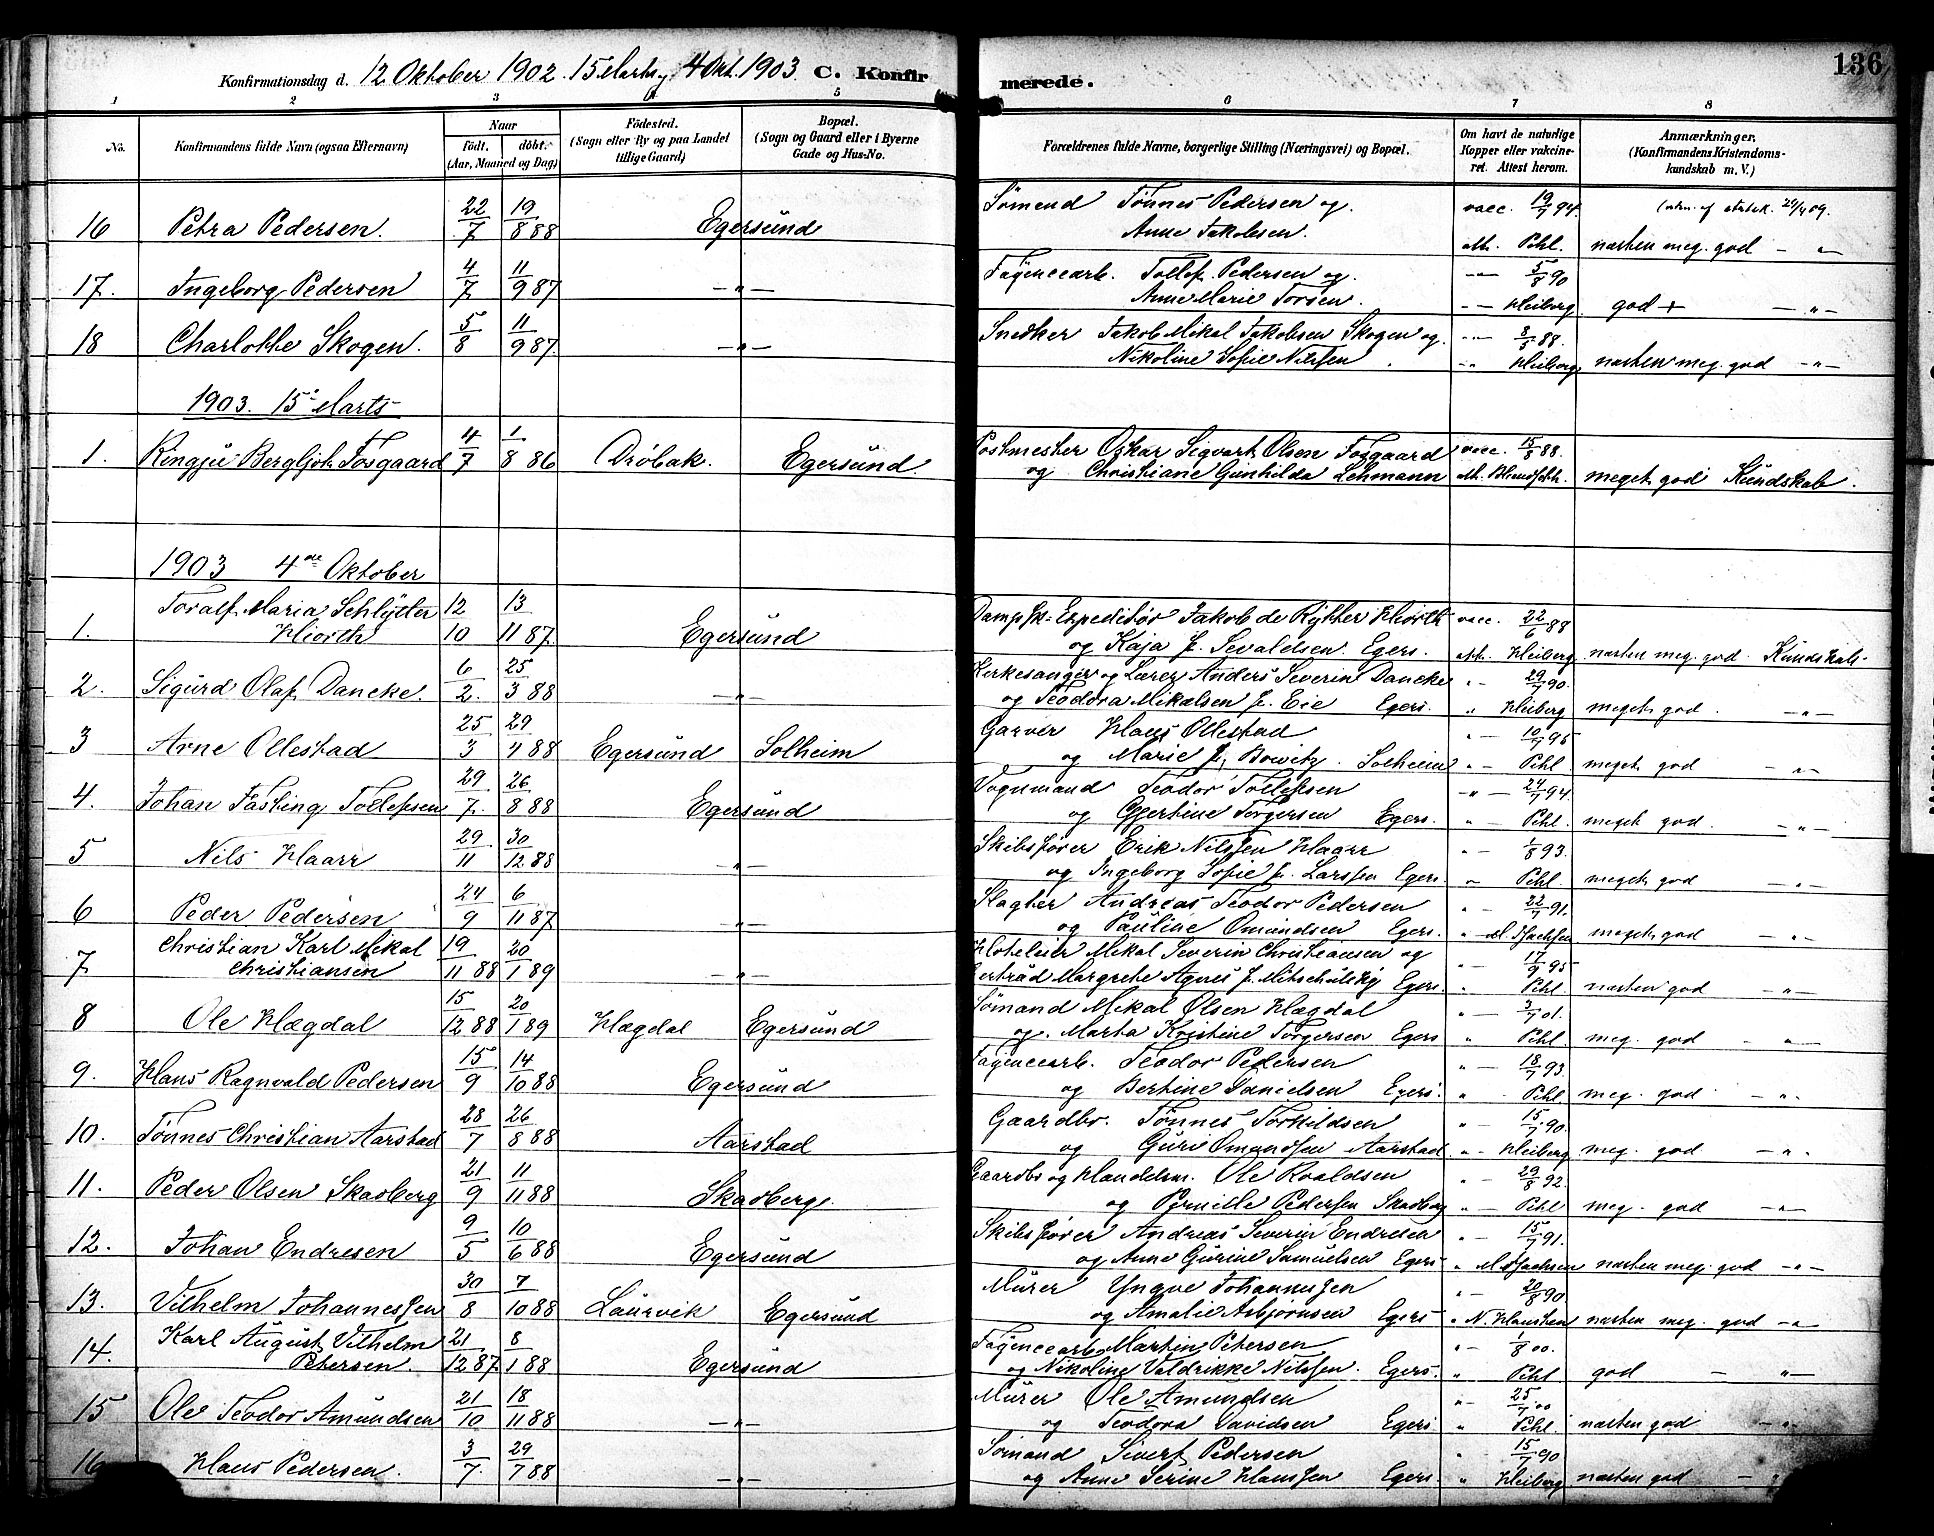 136
Konfirmationsdag d. 12 Oktober 1902. 15 Marts, 4 Okt. 1903. C. Konfirmerede.
1 2 3 4 5 6 7 8
No. Konfirmandens fulde Navn (ogsaa Efternavn) Naar födt. döbt. (Aar, Maaned og Dag) Födested. (Sogn eller By og paa Landet tillige Gaard) Bopæl. (Sogn og Gaard eller i Byerne Gade og Hus-No. Forældrenes fulde Navne, borgerlige Stilling (Næringsvei) og Bopæl. Om havt de naturlige Kopper eller vakcineret. Attest herom. Anmærkninger. (Konfirmandens Kristendomskundskab m. V.)
16 Petra Pedersen. 22/7 19/8 88 Egersund Sömand Tönnes Pedersen og vacc. 19/7 94.
Anne Jakobsen. att. Pihl. næsten meg. god - " -
17. Ingeborg Pedersen 4/7 11/9 87 - " - Fayencearb. Tollef Pedersen og - " - 5/8 90
Anne Marie Torsen. - - Heiberg god + - " -
18 Charlotte Skogen. 5/8 11/9 87 - " - Snedker Jakob Mikal Jakobsen Skogen og - " - 88.
Nikoline Sofie Nilssen - " Heiberg næsten meg. god - " -
1903. 15 Marts
1. Ringju Bergljot Fosgaard 4/7 1/8 86 Dröbak. Egersund. Postmester Oskar Sigvart Olsen Fosgaard vacc. 15/8 88.
og Christiane Gunhilda Lehmann att. meget god Kundskab.
1903 4de Oktober
1. Toralf Maria Schlytter Hiorth 12/10 13/11 87 Egersund Dampsk.-Expeditör Jakob de Rytter Hiorth vacc. 22/6 88
og Kaja f. Sevaldsen. Egers. att. Heiberg næsten meg. god. Kundskab-
2. Sigurd Olaf Dancke. 6/2. 25/3 88 - " - Kirkesanger og Lærer Anders Severin Dancke " - 29/7 90.
og Teodora Mikalsen f. Eie Egers. " Heiberg meget god. - " -
3 Arne Ollestad 25/3 29/4 88 Egersund Solheim Garver Klaus Ollestad " - 10/7 95
og Marie f. Bowitz. Solheim " - Pihl meget god - " -
4. Johan Fasting Tollefsen 29/7. 26/8 88 Egersund Vognmand Teodor Tollefsen - " - 24/7 94.
og Gjertine Torgersen Egers. " - Pihl. meget god. - " -
5 Nils Haarr 29/11 30/12 88 - " - Skibsförer Erik Nilssen Haarr " - 1/8 93.
og Ingeborg Sofie f. Larssen Egers. " Pihl. meget god - " -
6 Peder Pedersen 24/9 6/11 87 - " - Slagter Andreas Teodor Pedersen " - 22/7 91.
og Pauline Omundsen Egers. " meget god - " -
7 Christian Karl Mikal Christiansen 19/11 88 20/1 89 - " - Hoteleier Mikal Severin Christiansen og " - 17/9 95
Gertrud Margrete Agnes f. Mitschulsky Egers. " Pihl. næsten god - " -
8 Ole Hægdal 15/12 88 20/1 89 Hægdal Egersund Sömand Mikal Olsen Hægdal " - 3/7 01.
og Marta Kristine Torgersen Egers " Pihl meg. god - " -
9. Hans Ragnvald Pedersen 15/9 14/10 88 Egersund Fayencearb. Teodor Pedersen " - 18/7 93.
og Bertine Danielsen Egers. " - Pihl meg. god - " -
10. Tönnes Christian Aarstad 28/7 26/8 88 Aarstad Gaardbr. Tönnes Torkildsen " - 15/7 90.
og Guri Omundsen Aarstad " - Heiberg meg. god - " -
11. Peder Olsen Skadberg 21/9 11/11 88 Skadberg. Gaardbr og Handelsm. Ole Roaldsen " - 29/8 92.
og Pernille Pedersen Skadberg " - Pihl meg. god - " -
12. Johan Endresen 9/5 10/6 88 Egersund Skibsförer Andreas Severin Endresen " - 15/7 91.
og Anne Gurine Samuelsen Egers " næsten meg. god - " -
13. Vilhelm Johannessen 30/8 7/10 88 Laurvik Egersund Murer Yngve Johannessen " - 20/8 90
og Amalie Asbjörnsen Egers " N. næsten meg. god - " -
14. Karl August Vilhelm Petersen. 21/12 87. 8/1 88 Egersund Fayencearb Martin Petersen " - 1/8 00.
og Nikoline Valdrikke Nilssen. Egers. " Pihl god - " -
15 Ole Teodor Amundsen 21/10 18/11 88 - " - Murer Ole Amundsen " - 25/7 00
og Teodora Davidsen Egers " Pihl. næsten god - " -
16 Klaus Pedersen. 3/7. 29/7 88 - " - Sömand Sivert Pedersen " - 15/7 90
og Anne Serine Hanssen Egers " Heiberg næsten god - "